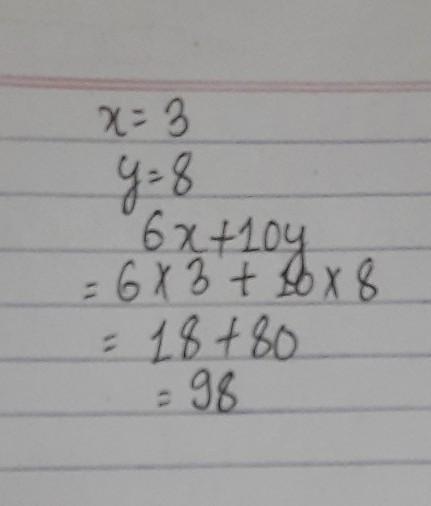 x = 3
y = 8
6x + 10y
= 6 × 3 + 10 × 8
= 18 + 80
= 98